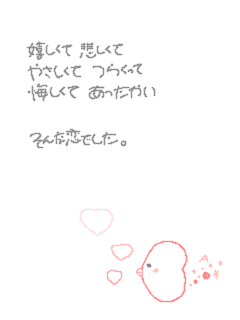 嬉しくて 悲しくて
やさしくて つらくって
悔しくて あったかい
そんな恋でした。